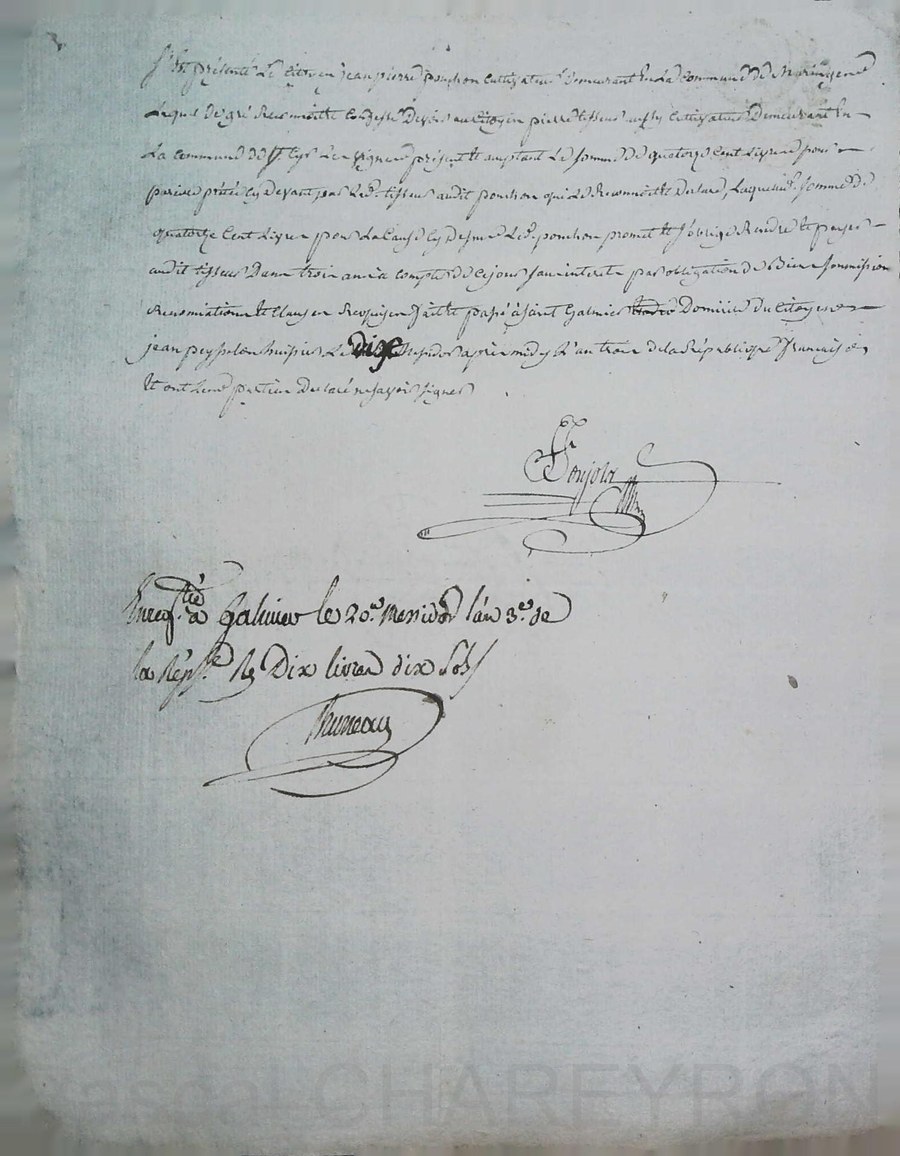 S'est présenté Le citoyen jean pierre ponchon Cultivateur Demeurant En La Commune De Maringe
Lequel De gré Reconnoit Et Confesse Devoir au Citoyen pierre tisseur aussy Cultivateur Demeurant En
La commune De présent Et acceptant La somme De quatorze Cent Livres pour
pareille prêtée cy Devant par Led. tisseur audit ponchon qui Le Reconnoit Et Declare, Laquelle d. somme De
quatorze Cent Livres pour La Cause cy Dessus Led. ponchon promet Et s'oblige Rendre Et payer
audit tisseur Dans trois ans a compter De Ce jour sans interets par obligation De Biens soumission
Renonciations Et Clauses Requises fait Et passé à saint Galmier Domicile Du Citoyen
jean peysselon huissier Le dix Messidor après midy L'an trois de la République francaise
Et ont Les parties Declaré ne savoir signer
Bonjour
Enregtré à Galmier le 20e. Messidor l'an 3e. de
la Répque. Rs Dix livres dix sols